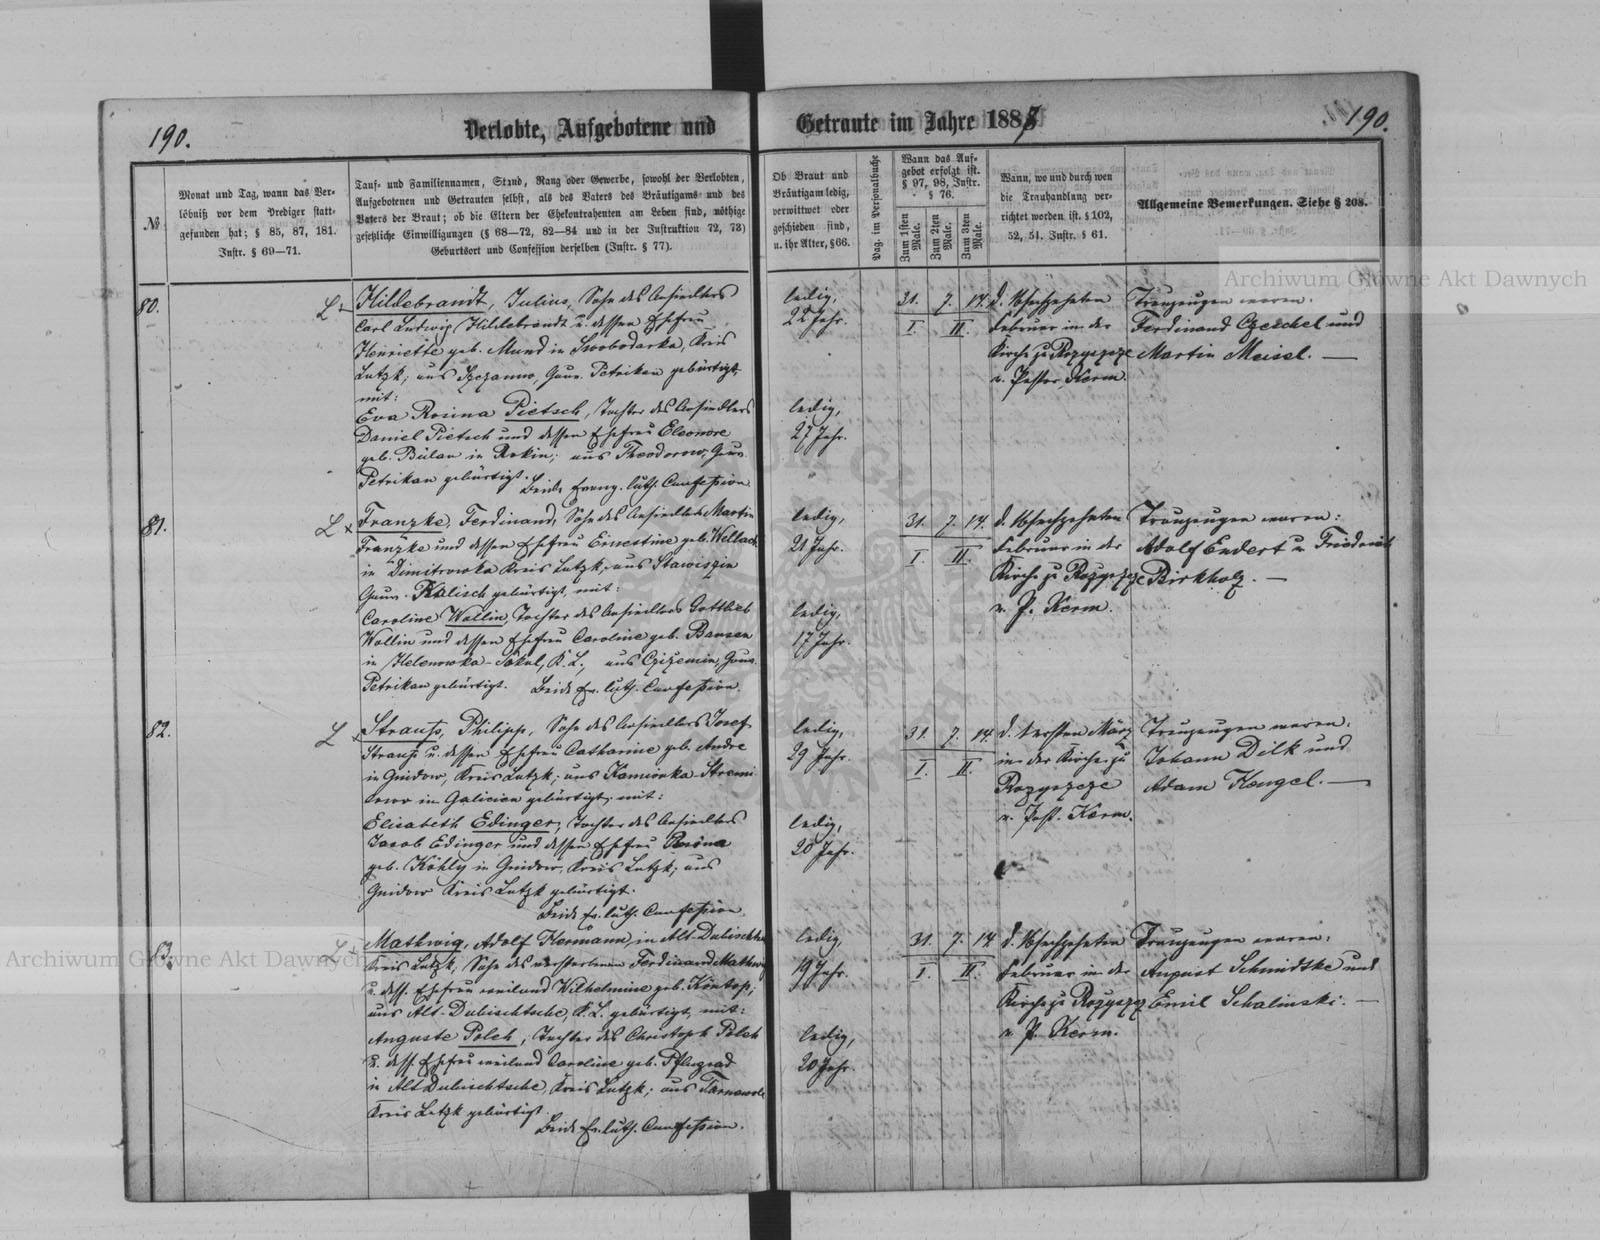 190.
Verlobte, Aufgebotene und
Getraute im Jahre 1888
190.
№
Monat und Tag, wann das Ver-
löbniß vor dem Prediger statt-
gefunden hat; § 85, 87, 181.
Instr. § 69—71.
Tauf- und Familiennamen, Stand, Rang oder Gewerbe, sowohl der Verlobten,
Aufgebotenen und Getrauten selbst, als des Vaters des Bräutigams und des
Vaters der Braut; ob die Eltern der Ehekontrahenten am Leben sind, nöthige
gesetzliche Einwilligungen (§ 68—72, 82—84 und in der Instruktion 72, 73)
Geburtsort und Confession derselben (Instr. § 77).
Ob Braut und
Bräutigam ledig,
verwittwet oder
geschieden sind,
u. ihr Alter, § 66.
Pag. im Personalbuche
Wann das Auf-
gebot erfolgt ist.
§ 97, 98, Instr.
§ 76.
Zum 1sten Male.
Zum 2ten Male.
Zum 3ten Male.
Wann, wo und durch wen
die Trauhandlung ver-
richtet worden ist. § 102,
52, 51. Instr. § 61.
Allgemeine Bemerkungen. Siehe § 208.
80.
L
Hildebrandt, Julius, Sohn des Ansiedlers
Carl Ludwig Hildebrandt u. dessen Ehefrau
Henriette geb. Mund in Swobodarka, Kreis
Lutzk; aus Gouv. Petrikau gebürtig,
mit:
Eva Rosina Pietsch, Tochter des Ansiedlers
Daniel Pietsch und dessen Ehefrau Eleonore
geb. Bülau in Rokin; aus Theodorow, Gouv.
Petrikau gebürtigt.
Beide Evang. luth. Confession
ledig,
22 Jahr.
ledig,
27 Jahr.
31. 7. 14.
I. II.
d. Achtzehnten
Februar in der
Kirche zu Rozyszcze
v. Pastor Kerm.
Trauzeugen waren:
Ferdinand Czeichel und
Martin Meisel. —
81.
L
Franzke, Ferdinand, Sohn des Ansiedlers Martin
Franzke und dessen Ehefrau Ernestine geb. Wellach
in Dimitrowka Kreis Lutzk, aus Stawiszin
Gouv. Kalisch gebürtig, mit:
Caroline Wollin, Tochter des Ansiedlers Gottlieb
Wollin und dessen Ehefrau Caroline geb. Banser
in Helenowka-Sokul, K. L., aus Gouv.
Petrikau gebürtigt. Beide Ev. luth. Confession.
ledig,
21 Jahr.
ledig,
17 Jahr.
31. 7. 14.
I. II.
d. Achtzehnten
Februar in der
Kirche zu Rozyszcze
v. P. Kerm.
Trauzeugen waren:
Adolf Endert u. Friedrich
Birkholz. —
82.
L
Strauss, Philipp, Sohn des Ansiedlers Josef
Strauss u. dessen Ehefrau Catharine geb. Andre
in Gnidow, Kreis Lutzk; aus Kamionka-Strumi
lowo in Galicien gebürtig, mit:
Elisabeth Edinger, Tochter des Ansiedlers
Jacob Edinger und dessen Ehefrau Rosina
geb. Köhly in Gnidow, Kreis Lutzk; aus
Gnidow Kreis Lutzk gebürtigt.
Beide Ev. luth. Confession.
ledig,
29 Jahr.
ledig,
20 Jahr.
31. 7. 14.
I. II.
d. Ersten März
in der Kirche zu
Rozyszcze
v. Past. Kerm.
Trauzeugen waren:
Johann Dilk und
Adam Kengel. —
83.
L
Mathwig, Adolf Hermann, in Alt-Dubischtsche
Kreis Lutzk, Sohn des verstorbenen Ferdinand Mathwig
u. dess. Ehefrau weiland Wilhelmine geb. Köntop;
aus Alt-Dubischtsche, K. L. gebürtigt, mit:
Auguste Polch, Tochter des Christoph Polch
u. dess. Ehefrau weiland Caroline geb. Pflugrad
in Alt-Dubischtsche, Kreis Lutzk; aus Tarnawola
Kreis Lutzk gebürtigt.
Beide Ev. luth. Confession.
ledig,
19 Jahr.
ledig,
20 Jahr.
31. 7. 14
I. II.
d. Achtzehnten
Februar in der
Kirche zu Rozyszcze
v. P. Kerm.
Trauzeugen waren:
August Schmidtke und
Emil Schalinski. —
Archiwum Główne Akt Dawnych
Archiwum Główne Akt Dawnych